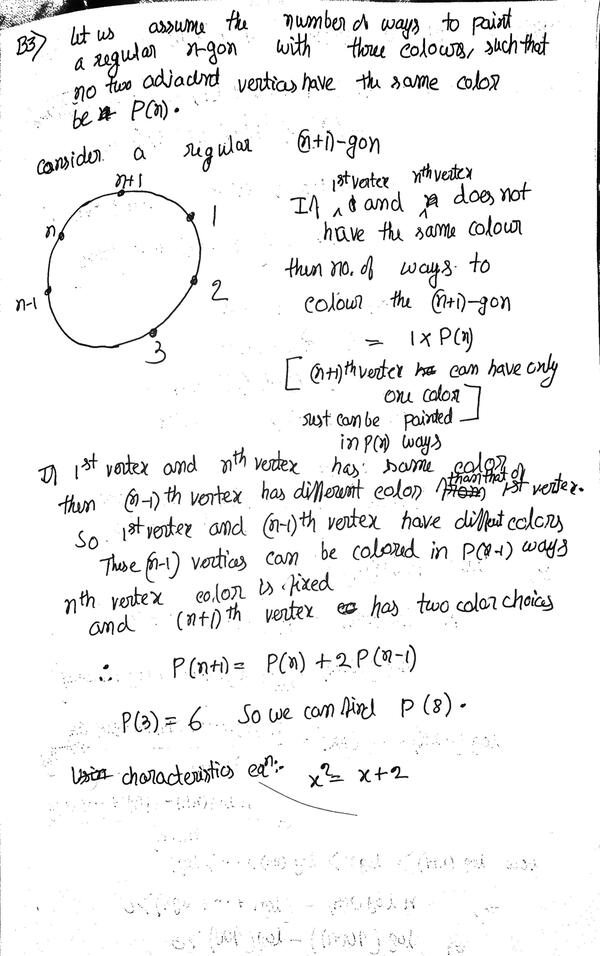 B3) Let us assume the number of ways to paint
a regular n-gon with three colours, such that
no two adjacent vertices have the same color
be P(n).
consider a regular (n+1)-gon
n+1
n
n-1
1
2
3
1st vertex nth vertex
If 1 and n does not
have the same colour
then no. of ways to
colour the (n+1)-gon
= 1 × P(n)
[ (n+1)th vertex can have only
one color ]
rest can be painted
in P(n) ways
If 1st vertex and nth vertex has same color
then (n-1)th vertex has different color than that of 1st vertex.
So 1st vertex and (n-1)th vertex have diffent colors
These (n-1) vertices can be colored in P(n-1) ways
nth vertex color is fixed
and (n+1)th vertex has two color choices
∴ P(n+1) = P(n) + 2P(n-1)
P(3) = 6 So we can find P(8).
Using characteristics eqn:- x² = x+2